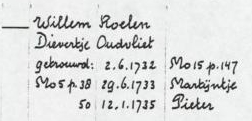 Willem Roelen
Dievertje Oudvliet
getrouwd: 2.6.1732 Mo 15 p.147
Mo 5 p.38 29.6.1733 Martijntje
50 12.1.1735 Pieter